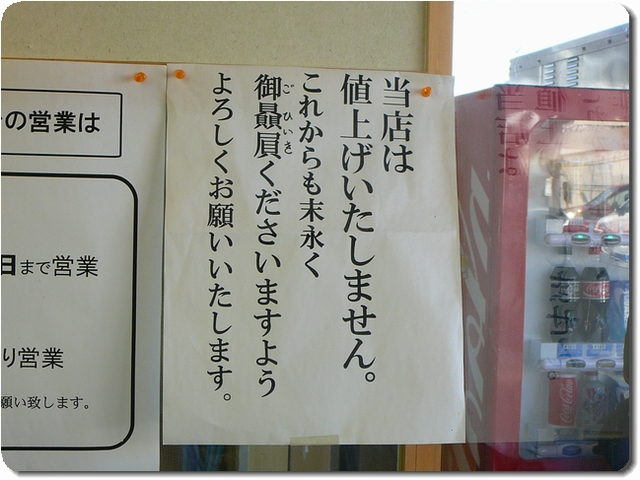 当店は
値上げいたしません。
これからも末永く
御贔屓くださいますよう
ごひいき
よろしくお願いいたします。
の営業は
日まで営業
り営業
願い致します。
Coca-Cola